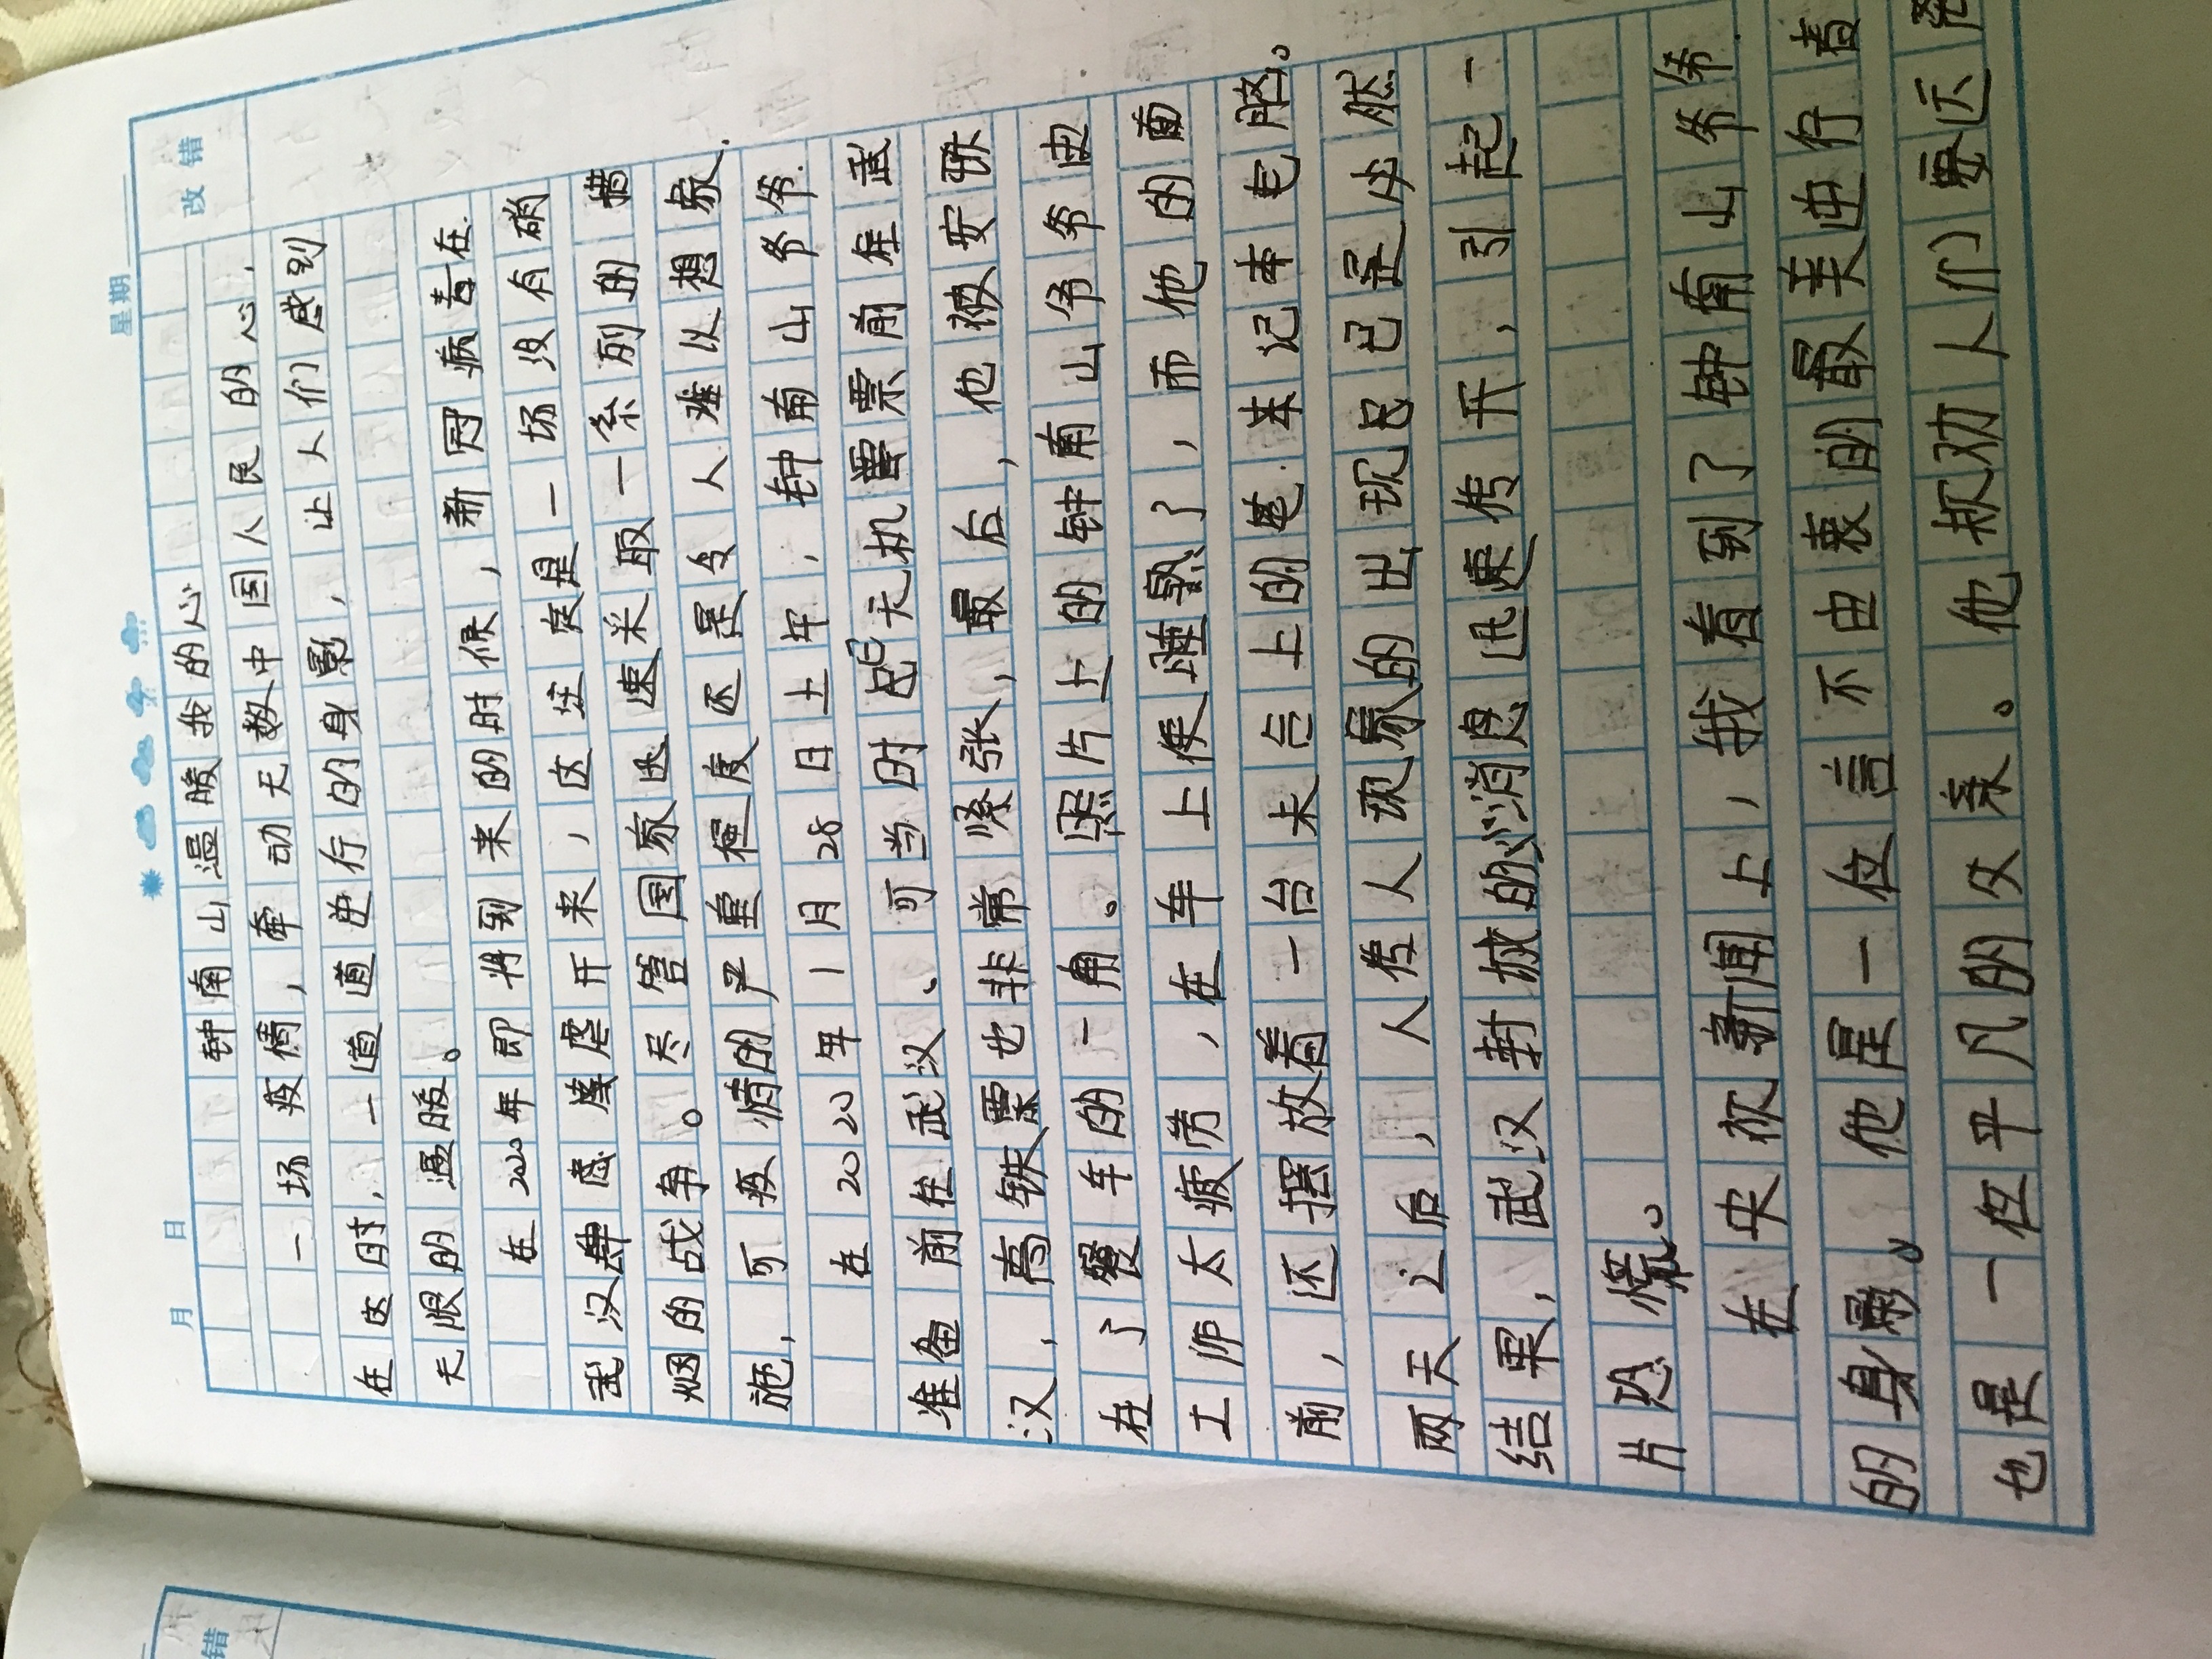 月 日 星期
改错
钟南山温暖我的心
一场疫情，牵动无数中国人民的心，
在这时，一道道逆行的身影，让人们感到
无限的温暖。
在2020年即将到来的时候，新冠病毒在
武汉肆虐开来，这注定是一场没有硝
烟的战争。尽管国家迅速采取一系列的措
施，可疫情的严重程度还是令人难以想象.
在2020年1月28日上午，钟南山爷爷
准备前往武汉、可当时已无机票前往武
汉，高铁票也非常紧张，最后，他被安排
在了餐车的一角。照片上的钟南山爷爷由
工作太疲劳，在车上便睡熟了，而他的面
前，还摆放着一台未合上的笔笨记本电脑。
两天之后，人传人现象的出现已是必然
结果，武汉封城的消息迅速传开，引起一
片恐慌。
在央视新闻上，我看到了钟南山爷爷
的身影。他是一位言不由衷的最美逆行者
也是一位平凡的父亲。他抓劝人们要医
错